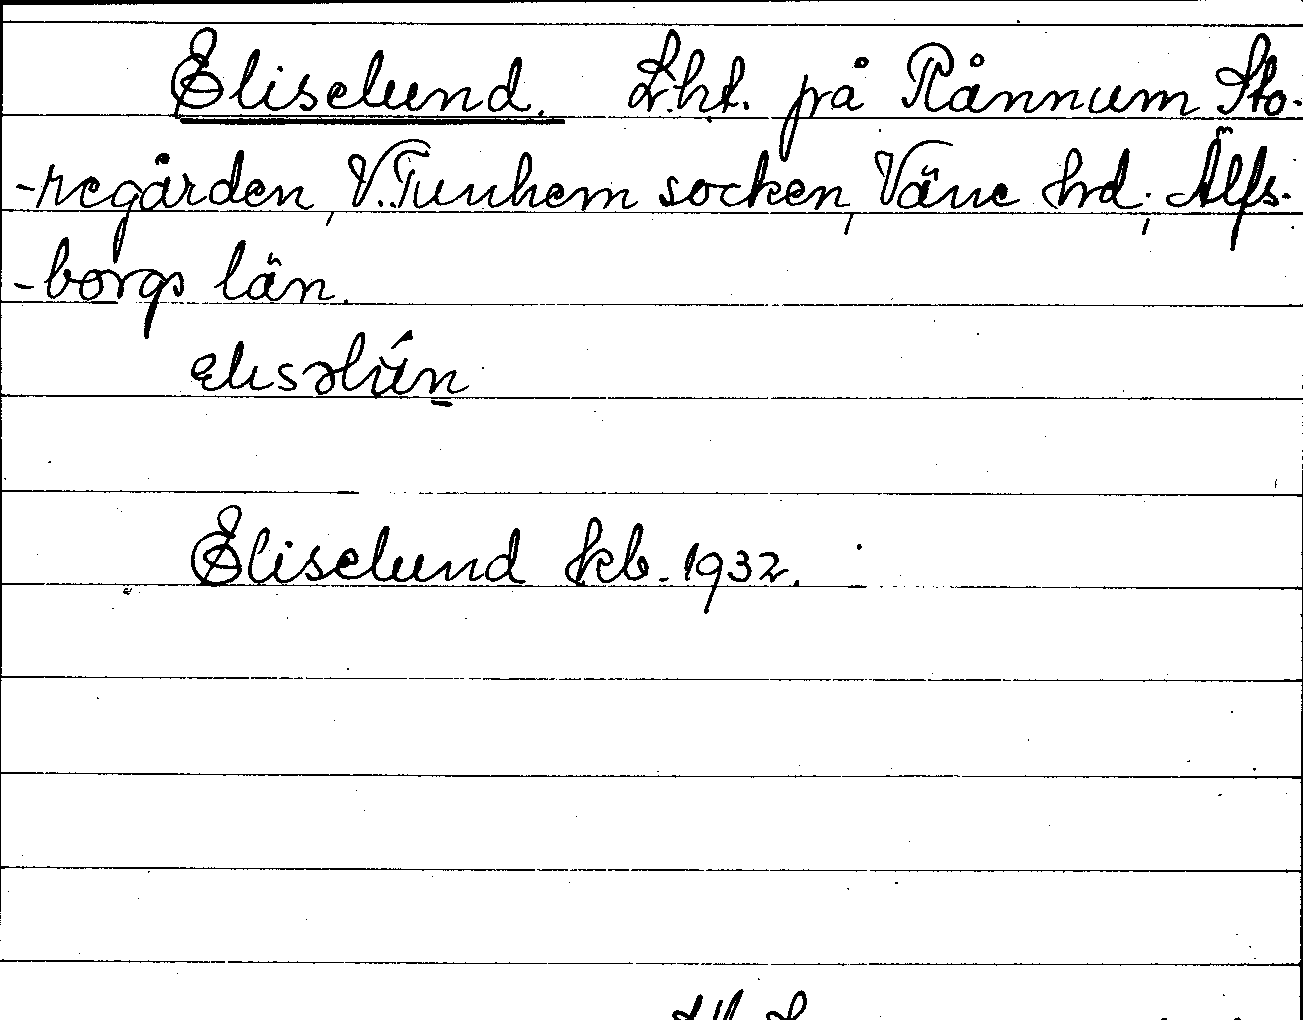 Eliselund. Lht. på Rånnum Sto-
-regården, V. Tunhem socken, Väne hrd, Älfs-
-borgs län.
elisəlún̲
Eliselund kb. 1932.